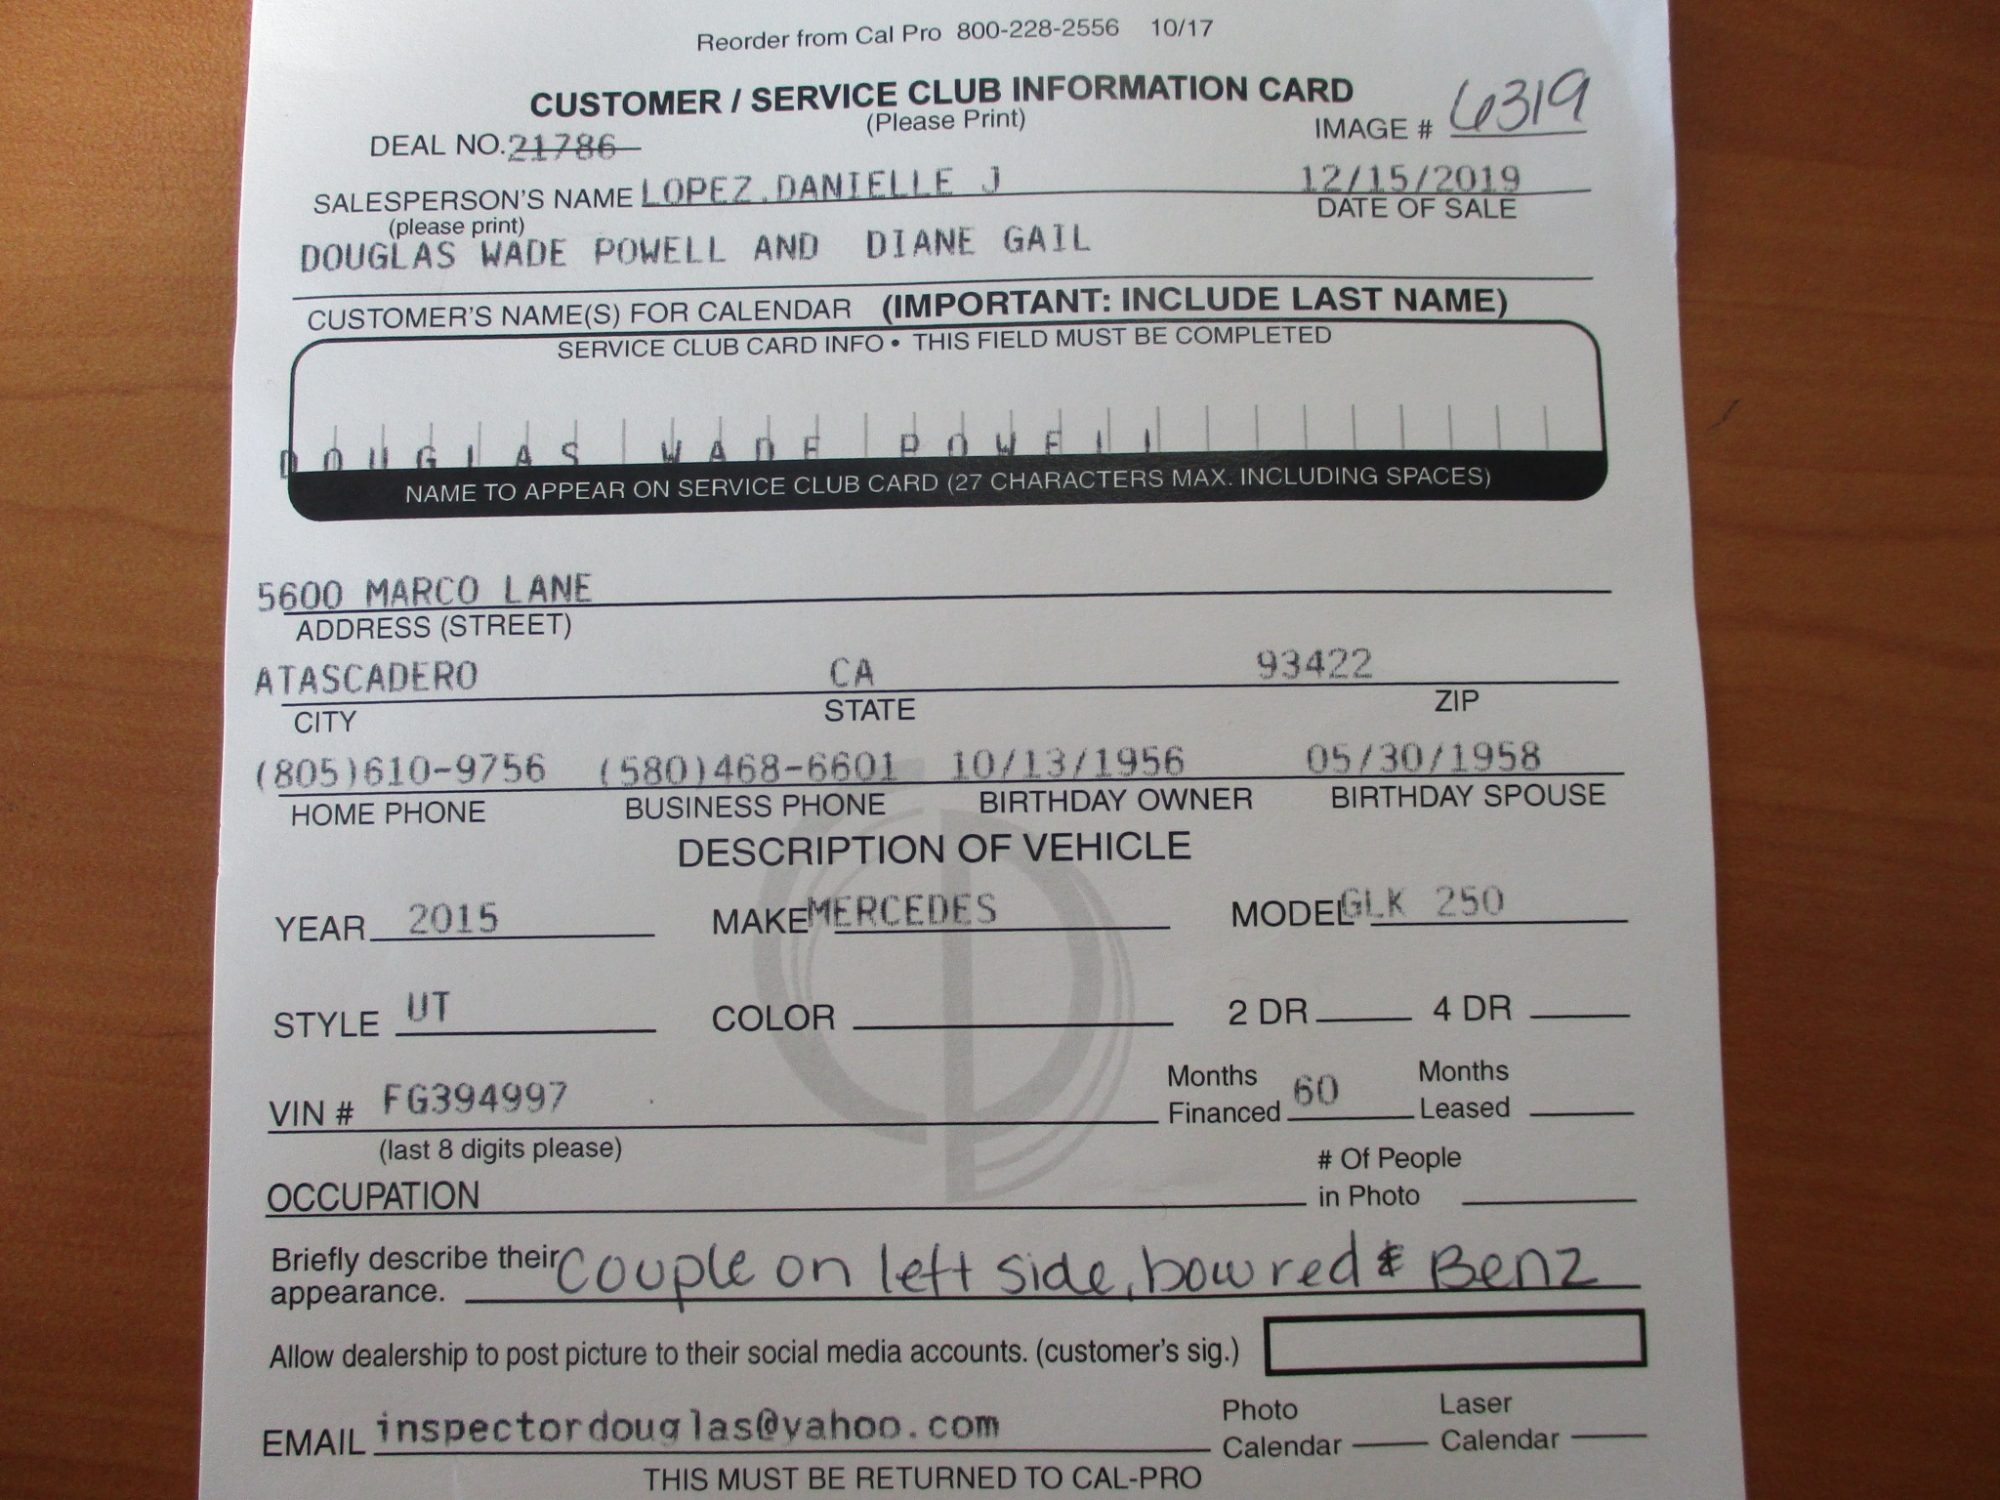 Reorder from Cal Pro 800-228-2556 10/17
CUSTOMER / SERVICE CLUB INFORMATION CARD
(Please Print)
DEAL NO. 21786
IMAGE # 6319
SALESPERSON'S NAME LOPEZ,DANIELLE J 12/15/2019
(please print) DATE OF SALE
DOUGLAS WADE POWELL AND DIANE GAIL
CUSTOMER'S NAME(S) FOR CALENDAR (IMPORTANT: INCLUDE LAST NAME)
SERVICE CLUB CARD INFO • THIS FIELD MUST BE COMPLETED
DOUGLAS WADE POWELL
NAME TO APPEAR ON SERVICE CLUB CARD (27 CHARACTERS MAX. INCLUDING SPACES)
5600 MARCO LANE
ADDRESS (STREET)
ATASCADERO CA 93422
CITY STATE ZIP
(805)610-9756 (580)468-6601 10/13/1956 05/30/1958
HOME PHONE BUSINESS PHONE BIRTHDAY OWNER BIRTHDAY SPOUSE
DESCRIPTION OF VEHICLE
YEAR 2015 MAKE MERCEDES MODEL GLK 250
STYLE UT COLOR 2 DR 4 DR
VIN # FG394997 Months Financed 60 Months Leased
(last 8 digits please)
OCCUPATION # Of People in Photo
Briefly describe their appearance. Couple on left side, bow red & Benz
Allow dealership to post picture to their social media accounts. (customer's sig.)
EMAIL inspectordouglas@yahoo.com Photo Calendar Laser Calendar
THIS MUST BE RETURNED TO CAL-PRO